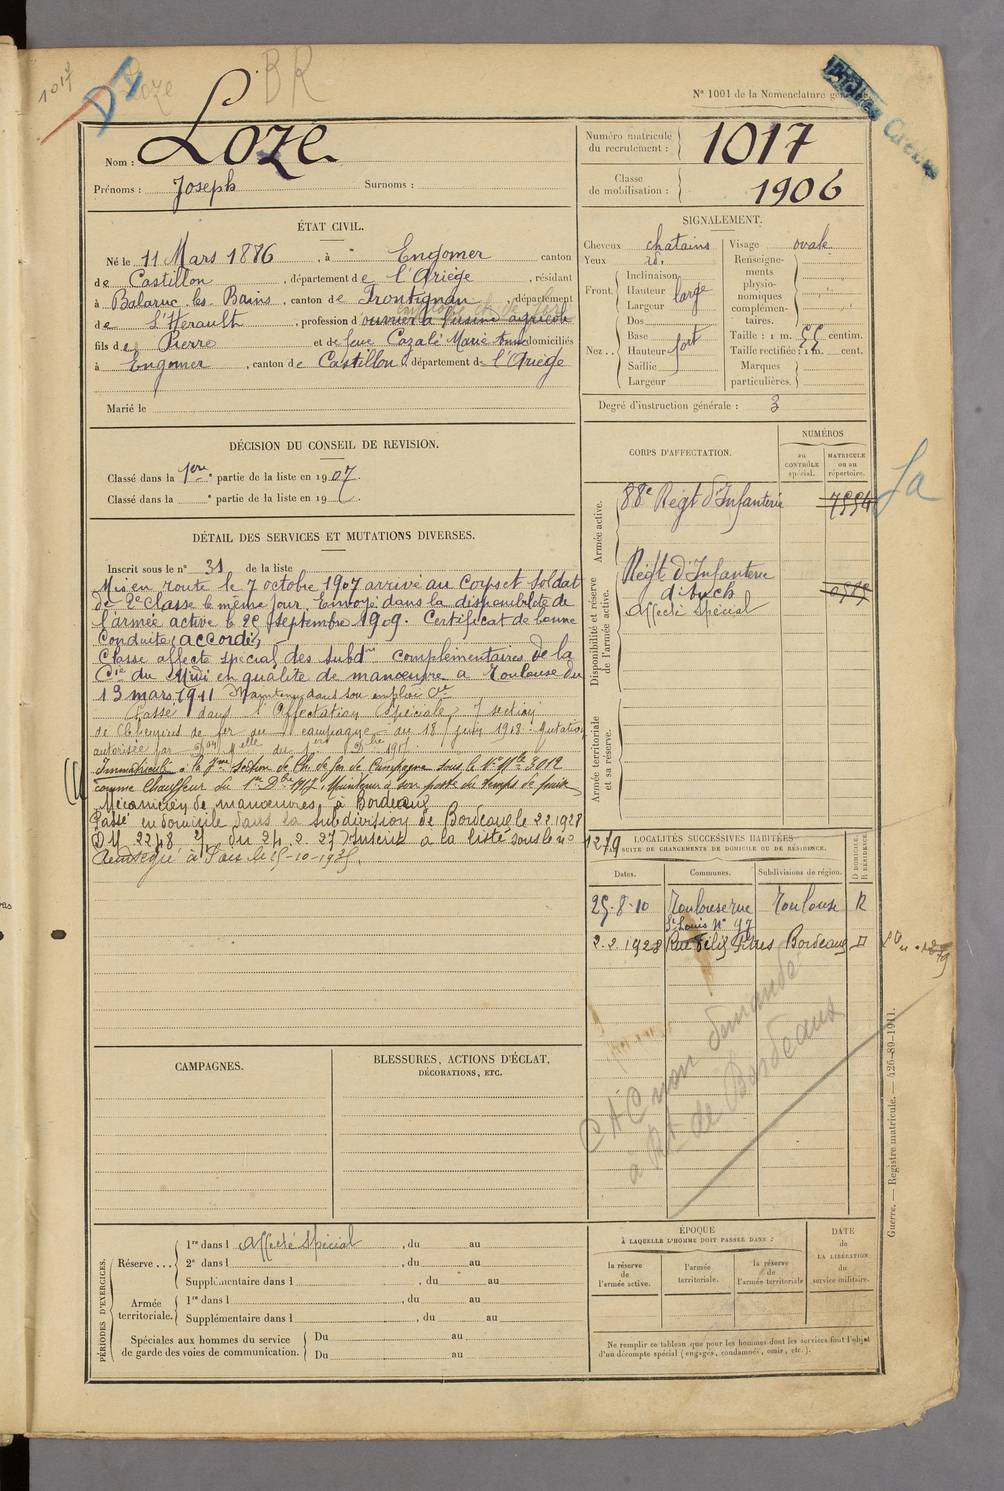 1017
Loze
BR
N° 1001 de la Nomenclature
Nom : Loze
Prénoms : Joseph Surnoms :
Numéro matricule du recrutement : 1017
Classe de mobilisation : 1906
ÉTAT CIVIL.
Né le 11 Mars 1886, à Engomer canton
de Castillon, département de l'Ariège, résidant
à Balaruc les Bains, canton de Frontignan, département
de L'Hérault, profession d ouvrier à l'usine agricole
fils de Pierre et de feue Cazalé Marie domiciliés
à Engomer, canton de Castillon, département de l'Ariège
Marié le
SIGNALEMENT.
Cheveux chatains Visage ovale
Yeux id.
Front. Inclinaison
Hauteur large
Largeur
Nez.. Dos
Base
Hauteur fort
Saillie
Largeur
Renseignements physionomiques complémentaires.
Taille : 1 m. 66 centim.
Taille rectifiée : 1 m. cent.
Marques particulières.
Degré d'instruction générale : 3
DÉCISION DU CONSEIL DE REVISION.
Classé dans la 1ere partie de la liste en 1907.
Classé dans la e partie de la liste en 19
DÉTAIL DES SERVICES ET MUTATIONS DIVERSES.
Inscrit sous le n° 31 de la liste
Mis en route le 7 octobre 1907 arrivé au Corps et soldat
de 2e classe le même jour. Envoyé dans la disponibilité de
l'armée active le 25 Septembre 1909. Certificat de bonne
Conduite "accordé",
Classe affecté spécial des subdons complémentaires de la
Cie du Midi en qualité de manœuvre a Toulouse du
13 mars 1911 Maintenu dans son emploi
Passé dans l'Affectation Spéciale, 7 section
de Chemins de fer de campagne du 18 juin 1918.
autorisée par du 1er Dbre 1917.
Immatriculé à la 7me Section de Ch. de fer de Campagne sous le No Mle 3012
comme Chauffeur du 1er Dbre 1917. Maintenu à son poste en temps de guerre
Mécanicien de manœuvres, à Bordeaux
Passé en domicile dans la subdivision de Bordeaux le 2.2.1928
D.M. 2248 du 24.2.27) Inscrit a la liste sous le no 1279
CORPS D'AFFECTATION.
NUMÉROS
au CONTRÔLE spécial.
MATRICULE ou au répertoire.
Armée active.
88e Régt d'Infanterie 7554
Disponibilité et réserve de l'armée active.
Régt d'Infanterie
d'Auch
Affecté Spécial
Armée territoriale et sa réserve.
LOCALITÉS SUCCESSIVES HABITÉES
PAR SUITE DE CHANGEMENTS DE DOMICILE OU DE RÉSIDENCE.
D DOMICILE. R RÉSIDENCE.
Dates. Communes. Subdivisions de région.
25-8-10 Toulouse rue St Louis N° 97 Toulouse R
2.2.1928 Rue Félix Pitres Bordeaux D
non demandé
à Rt de Bordeaux
CAMPAGNES.
BLESSURES, ACTIONS D'ÉCLAT,
DÉCORATIONS, ETC.
PÉRIODES D'EXERCICES.
Réserve... 1re dans l Affecté Spécial, du au
2e dans l , du au
Supplémentaire dans l , du au
Armée territoriale. 1re dans l , du au
Supplémentaire dans l , du au
Spéciales aux hommes du service de garde des voies de communication. Du au
Du au
ÉPOQUE
À LAQUELLE L'HOMME DOIT PASSER DANS :
la réserve de l'armée active.
l'armée territoriale.
la réserve de l'armée territoriale
DATE de LA LIBÉRATION du service militaire.
Ne remplir ce tableau que pour les hommes dont les services font l'objet
d'un décompte spécial (engagés, condamnés, omis, etc.).
Guerre. — Registre matricule. — 426-89-1911.